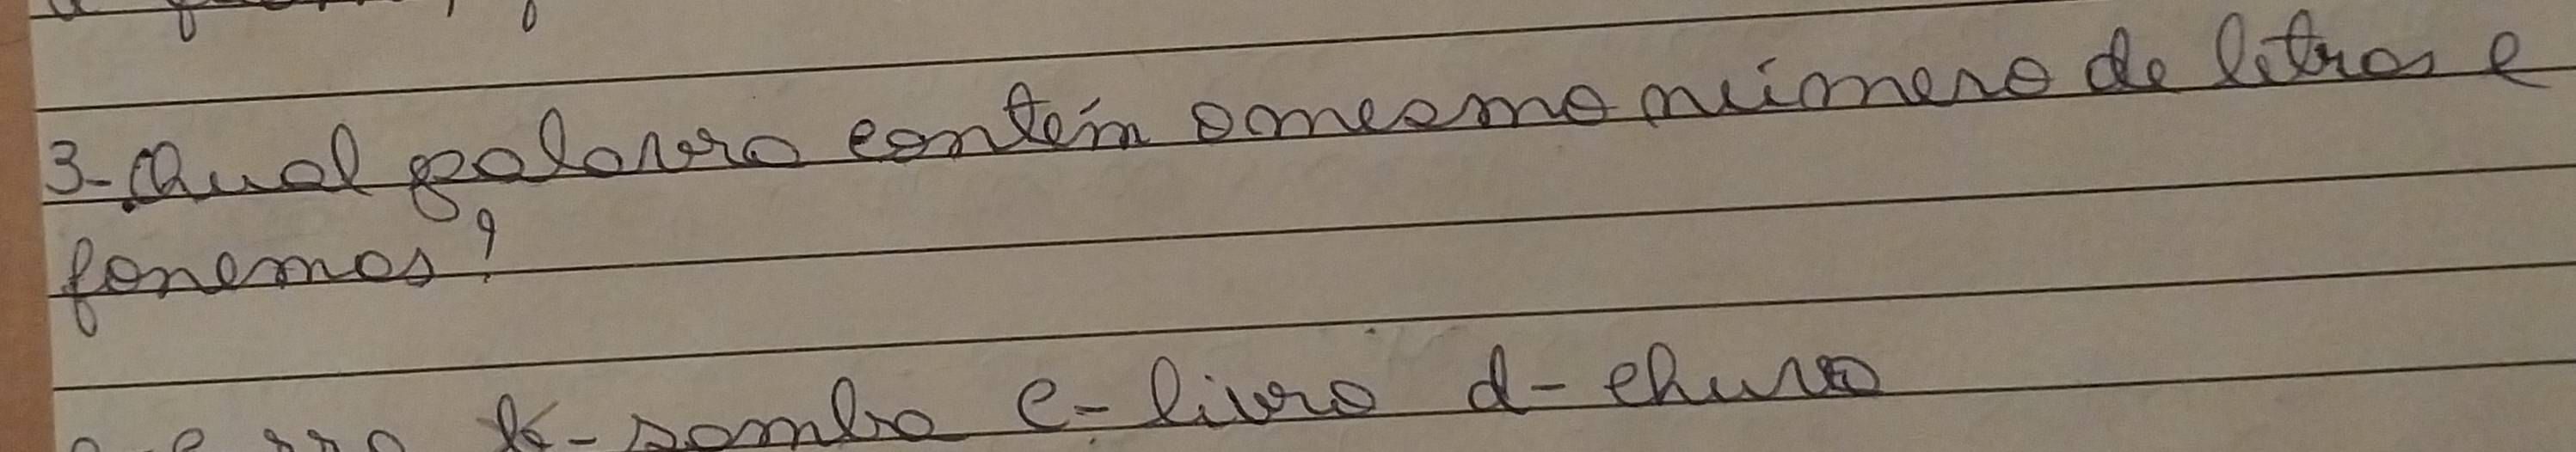 3- Qual palavra contém o mesmo número de letras e
fonemas?
b- samba c- livro d- chuva